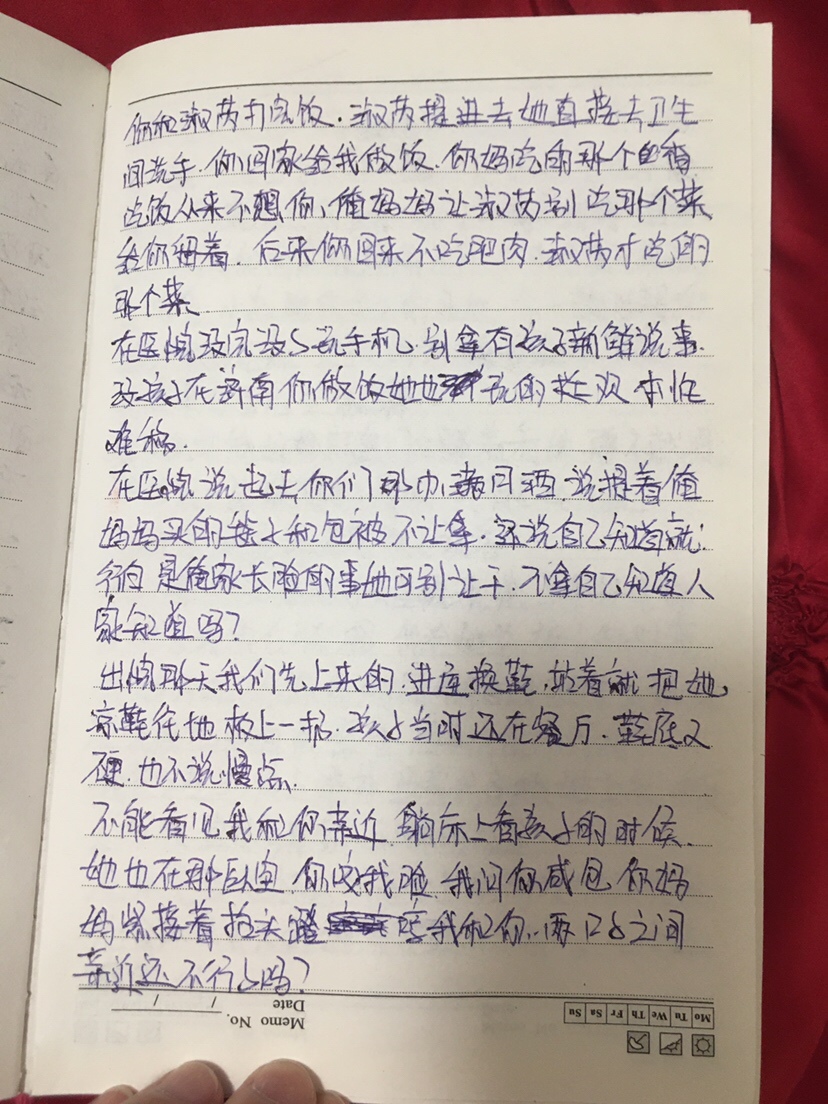 你和淑芮打完饭.淑芮提进去她直接去卫生
间洗手.你回家给我做饭.你妈吃的那个也香
吃饭从来不想你,俺妈妈让淑芮别吃那个菜
给你留着.后来你回来不吃肥肉.淑芮才吃的
那个菜、
在医院没完没了玩手机.别拿有孩子新鲜说事.
没孩子在济南你做饭她也玩的挺欢 本性
难移.
在医院说起去你们那的满月酒.说提着俺
妈妈买的毯子和包被不让拿.还说自己知道就
行的 是俺家长脸的事她可别让干.不拿自己知道人
家知道吗?
出院那天我们先上来的.进屋换鞋,站着就把她
凉鞋往地板上一扔.孩子当时还在客厅.鞋底又
硬.也不说慢点、
不能看见我和你亲近 躺床上看孩子的时候.
她也在那卧室.你咬我脸.我问你咸吧 你妈
妈紧接着抬头蹬 我和你..两口子之间
亲近还不行了吗?
Memo No.
Date / /
Mo Tu We Th Fr Sa Su